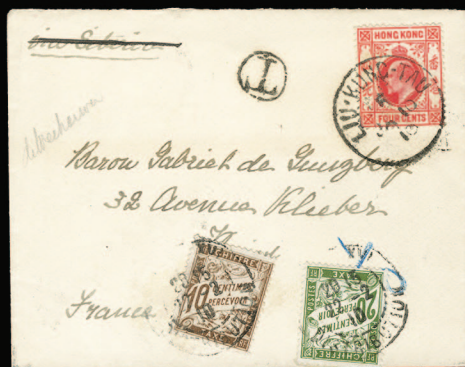 via Siberia
HONG KONG
FOUR CENTS
LIU-KUNG-TAU
T
Baron Gabriel de Gunzburg
32 Avenue Kleber
Paris
France
CHIFFRE
TAXE
10
CENTIMES
A PERCEVOIR
POSTES
20
CENTIMES
A PERCEVOIR
CHIFFRE
TAXE